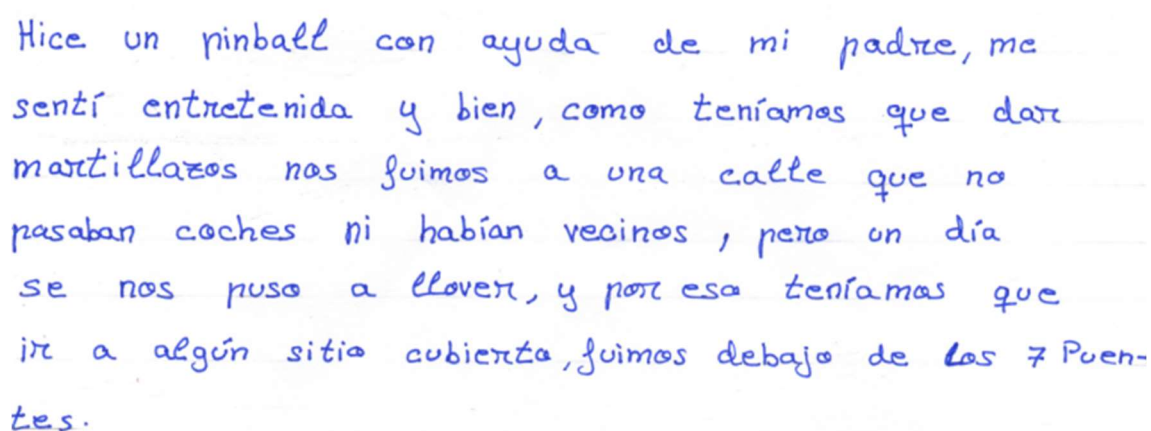 Hice un pinball con ayuda de mi padre, me
sentí entretenida y bien, como teníamos que dar
martillazos nos fuimos a una calle que no
pasaban coches ni habían vecinos, pero un día
se nos puso a llover, y por eso teníamos que
ir a algún sitio cubierto, fuimos debajo de los 7 Puen-
tes.